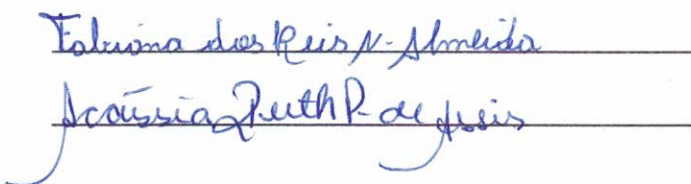 Fabiana dos Reis N. Almeida
Acássia Ruth P. de Assis